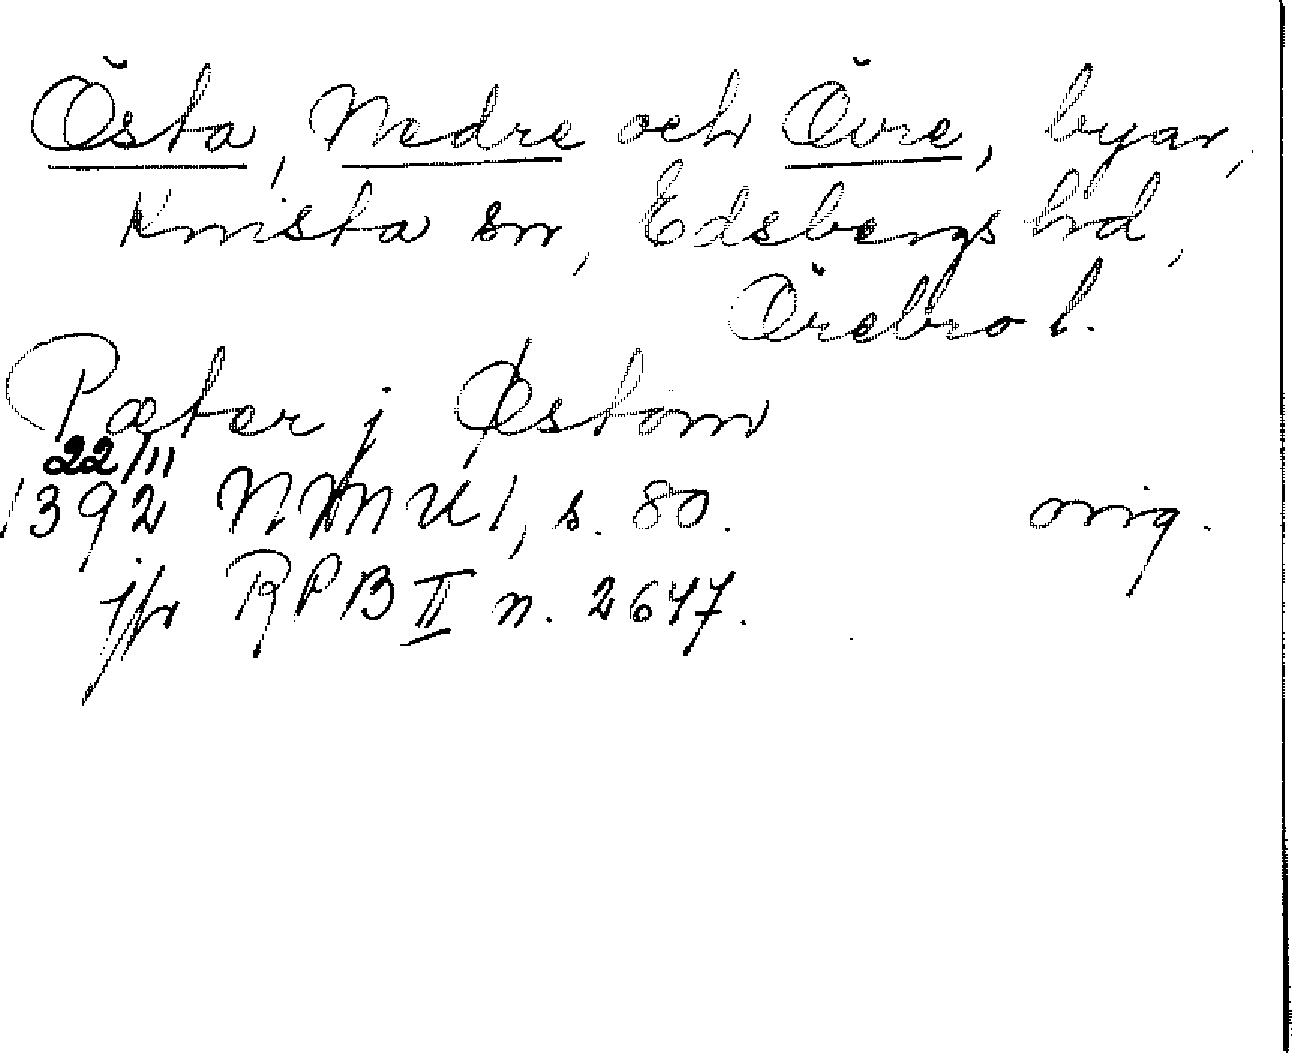 Östa, Nedre och Övre, byar,
Knista sn, Edsbergs hd,
Örebro l.
Pæter j Østom
22/11
1392 NMU1, s. 80. orig.
jfr RPB II n. 2647.